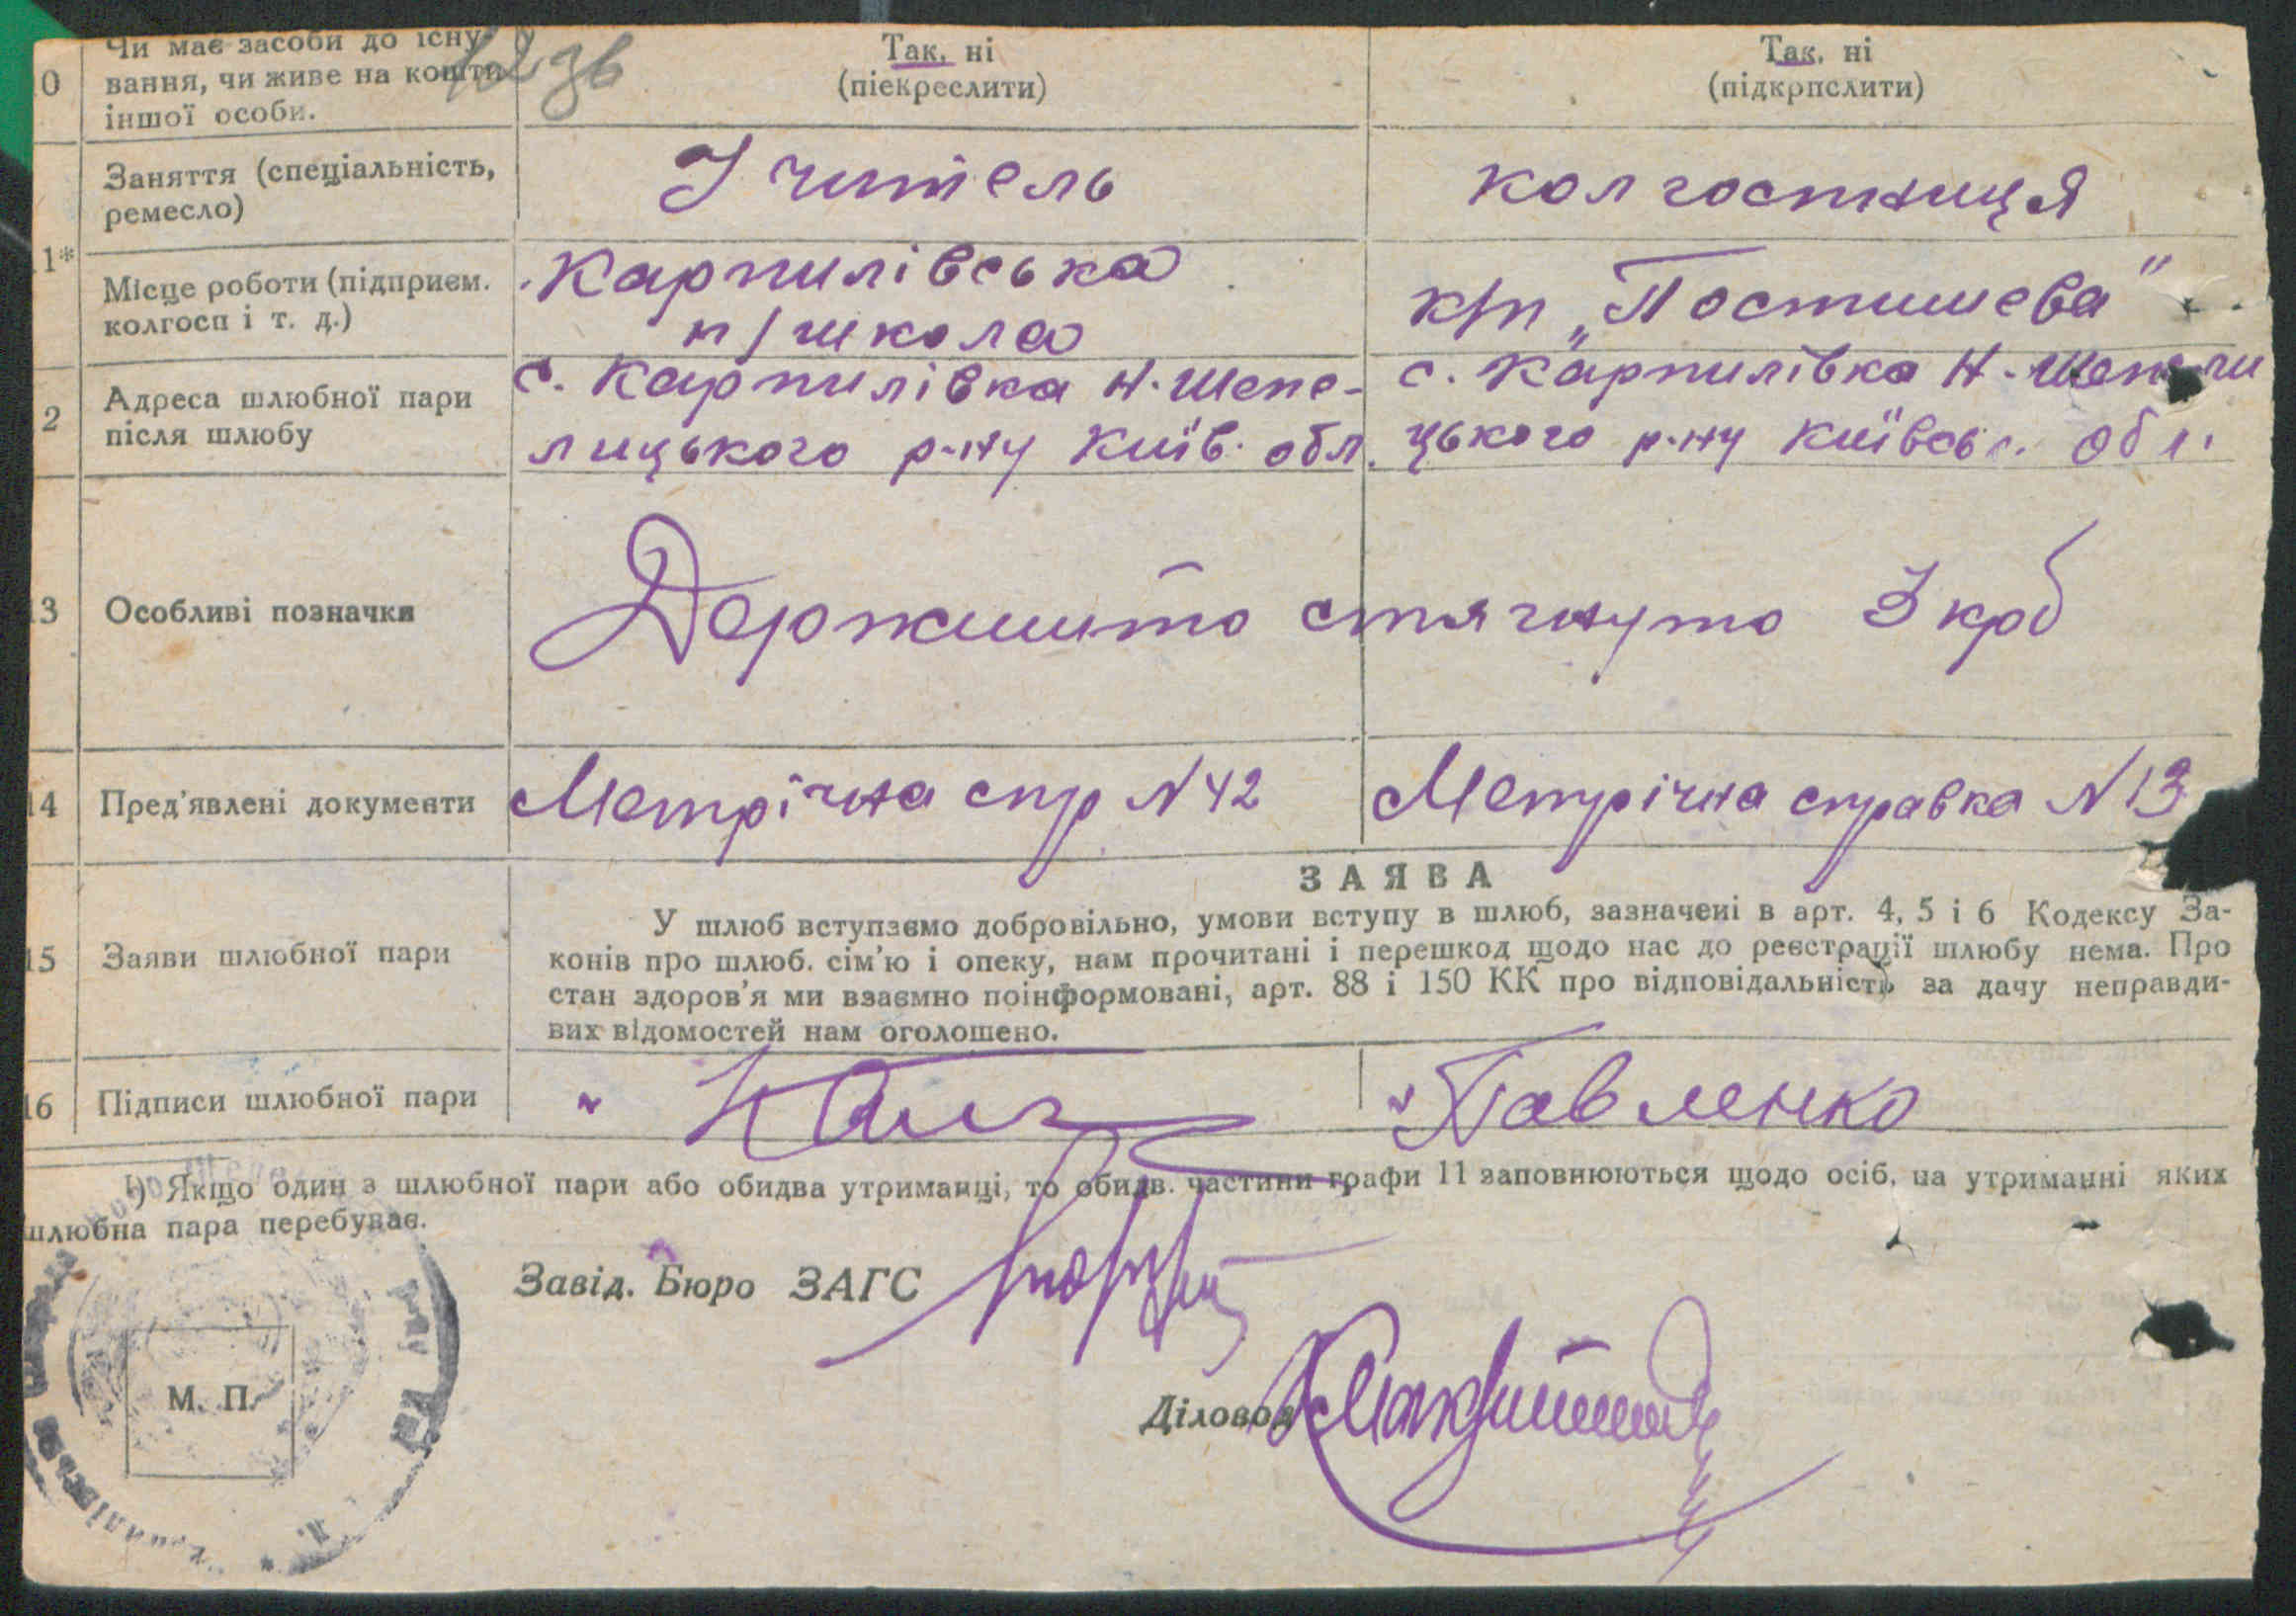 Чи має засоби до існу-
вання, чи живе на кошти
іншої особи.
0
Так, ні
(піекреслити)
Так, ні
(підкрпслити)
Заняття (спеціальність,
ремесло)
Учитель
колгоспниця
1*
Місце роботи (підприєм.
колгосп і т. д.)
Карпилівська
п/школа
к/п „Постишева"
2
Адреса шлюбної пари
після шлюбу
с. Карпилівка Н-Шепе-
лицького р-ну Київ. обл.
с. Карпилівка Н-
цького р-ну Київськ. обл.
13
Особливі позначки
Держмито стягнуто 3 крб
14
Пред'явлені документи
Метрічна спр N 42
Метрічна справка N 13
15
Заяви шлюбної пари
ЗАЯВА
У шлюб вступаємо добровільно, умови вступу в шлюб, зазначені в арт. 4, 5 і 6 Кодексу За-
конів про шлюб. сім'ю і опеку, нам прочитані і перешкод щодо нас до реєстрації шлюбу нема. Про
стан здоров'я ми взаємно поінформовані, арт. 88 і 150 КК про відповідальність за дачу неправди-
вих відомостей нам оголошено.
16
Підписи шлюбної пари
Павленко
1) Якщо один з шлюбної пари або обидва утриманці, то обидв. частини графи 11 заповнюються щодо осіб, на утриманні яких
шлюбна пара перебуває.
Завід. Бюро ЗАГС
М. П.
Діловод